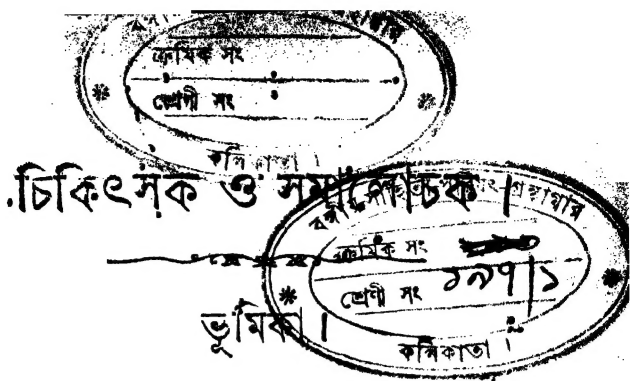 ক্রমিক সং
শ্রেণী সং
কলিকাতা ।
চিকিৎসক ও সমালোচক ।
গ্রন্থাগার
ক্রমিক সং
শ্রেণী সং ১৯৭|১
ভূমিকা ।
কলিকাতা ।